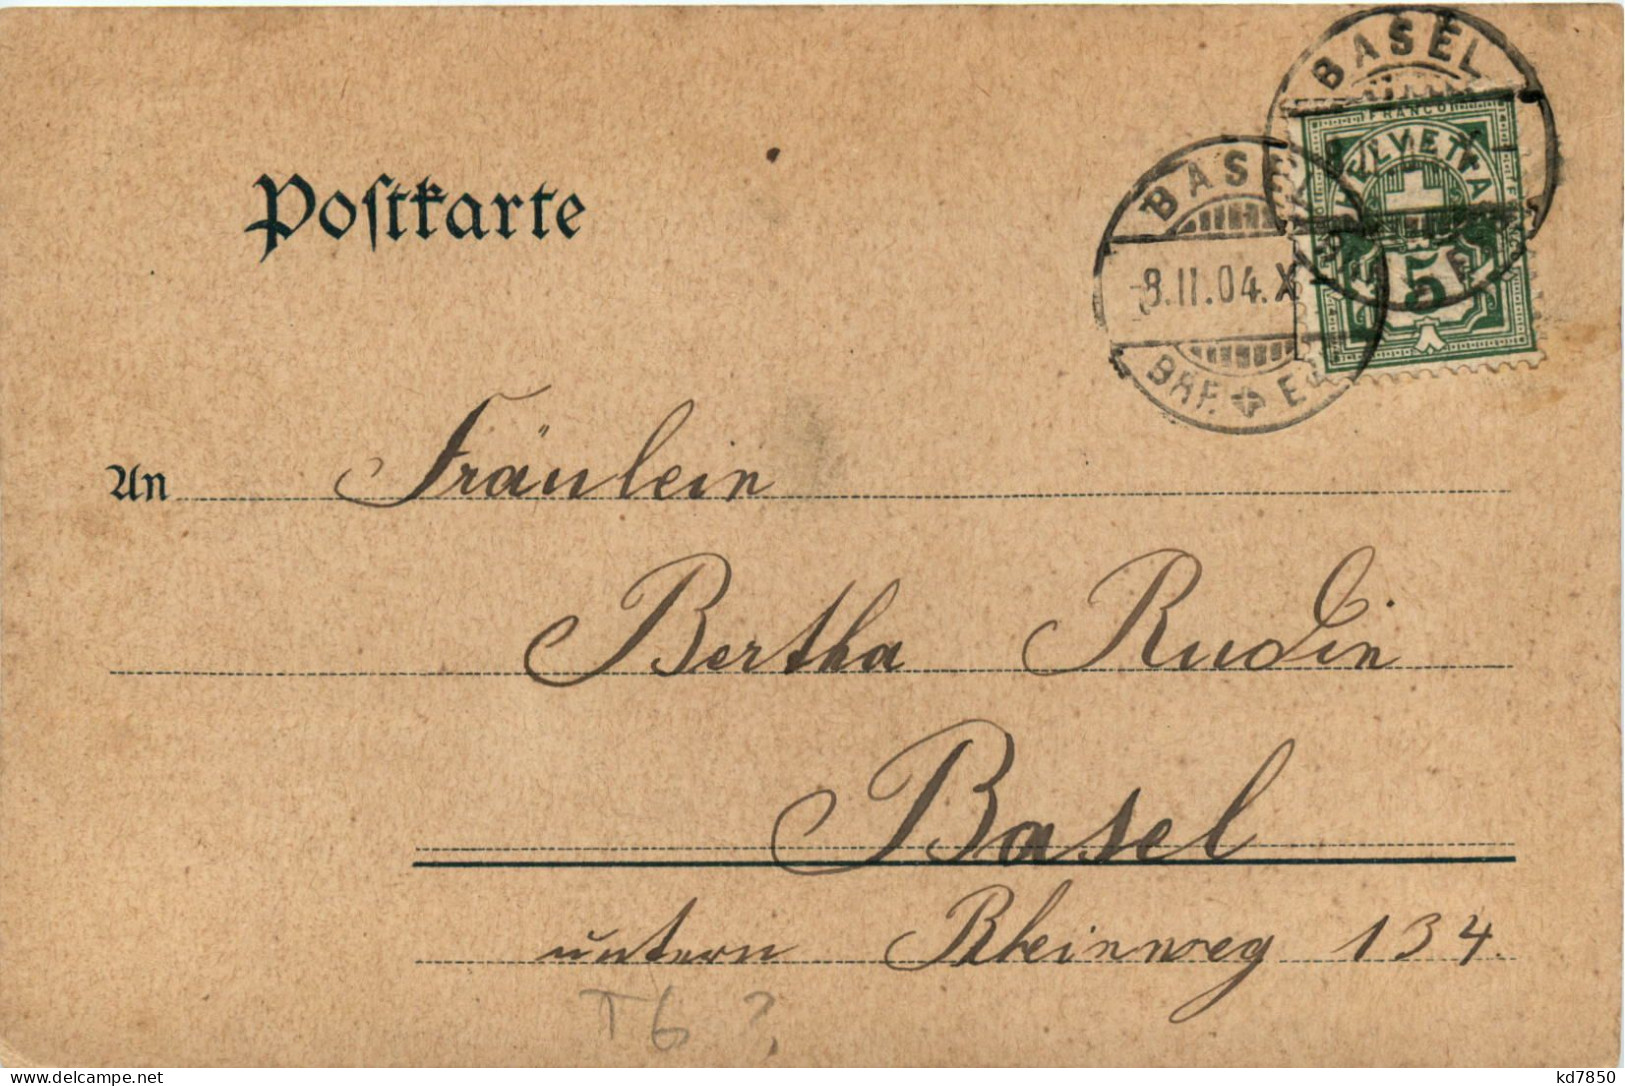 BASEL
FRANCO
HELVETIA
5
BASEL
-8.II.04.X
BRF. E
Postkarte
An Fräulein
Bertha Rudin
Basel
untern Rheinweg 134.
T 6 ?
www.delcampe.net
kd7850